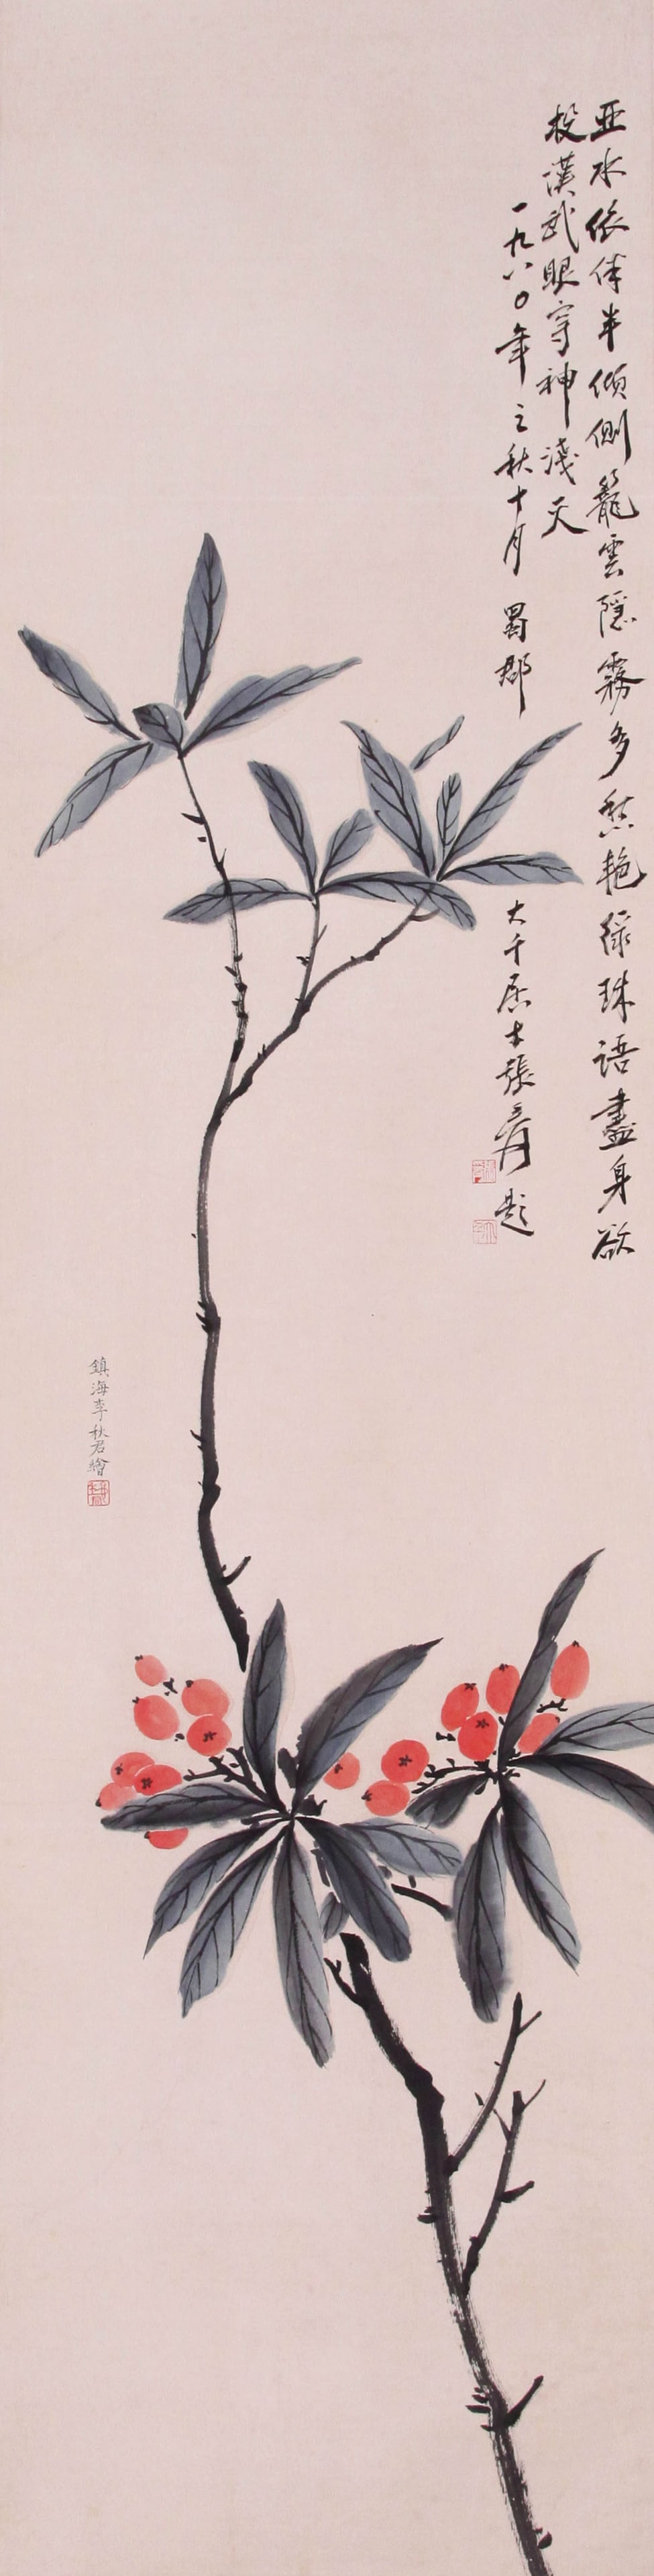 亚水依伴半倾側籠雲隱霧多愁艳绿珠语盡身欲
投漢武眼穿神淺灭
一九八〇年之秋十月 蜀郡 大千居士張爰題
鎮海李秋君繪